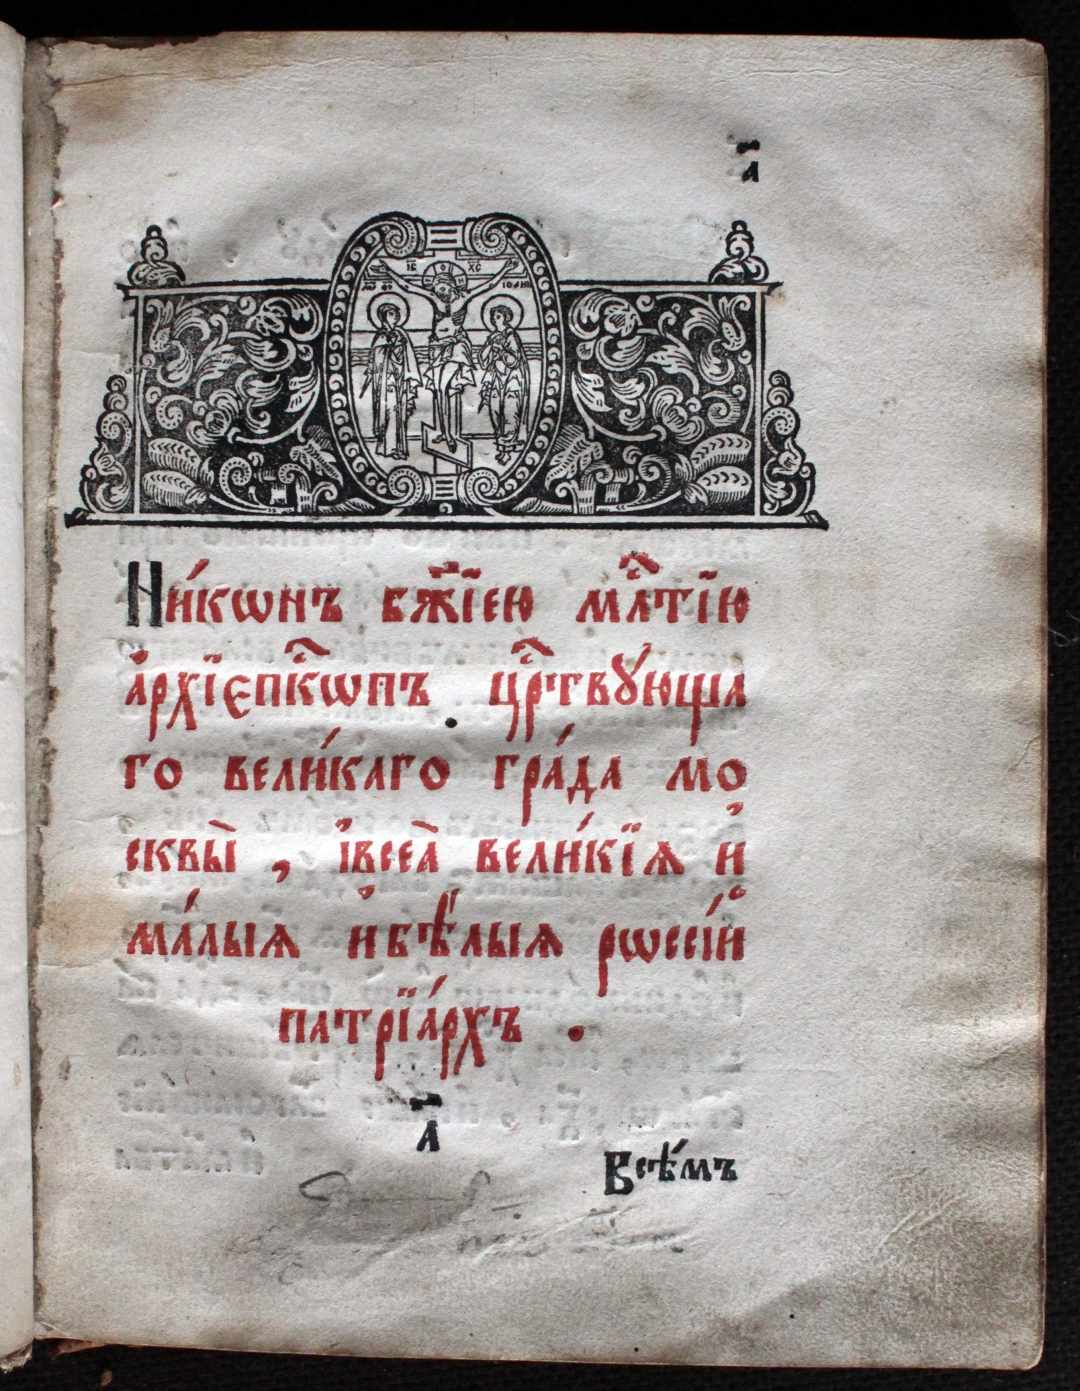 а҃
ІС ХС
Ни́кѡнъ бж҃їею млⷭ҇тїю
а҆рхїепⷭ҇кѡпъ црⷭ҇твꙋ́юща
го вели́каго гра́да мо
сквы̀ , и҆всеѧ̀ вели́кїѧ и҆
ма́лыѧ и҆бѣ́лыѧ рѡссі́и
патрїа́рхъ .
а҃
Всѣ́мъ